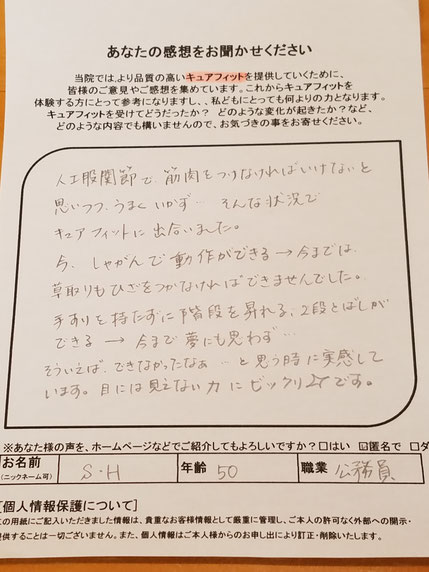 あなたの感想をお聞かせください
当院では、より品質の高いキュアフィットを提供していくために、
皆様のご意見やご感想を集めています。これからキュアフィットを
体験する方にとって参考になりますし、、私どもにとっても何よりの力となります。
キュアフィットを受けてどうだったか？ どのような変化が起きたか？など、
どのような内容でも構いませんので、お気づきの事をお寄せください。
人工股関節で、筋肉をつけなければいけないと
思いつつ、うまくいかず… そんな状況で
キュアフィットに出合いました。
今、しゃがんで動作ができる→今までは、
草取りもひざをつかなければできませんでした。
手すりを持たずに階段を昇れる、2段とばしが
できる → 今まで夢にも思わず…
そういえば、できなかったなぁ…と思う時に実感して
います。目には見えない力にビックリです。
※あなた様の声を、ホームページなどでご紹介してもよろしいですか？□はい ☑匿名で □ダ
お名前 S・H 年齢 50 職業 公務員
(ニックネーム可)
[個人情報保護について]
この用紙にご記入いただきました情報は、貴重なお客様情報として厳重に管理し、ご本人の許可なく外部への開示・
提供することは一切ございません。また、個人情報はご本人様からのお申し出により訂正・削除いたします。